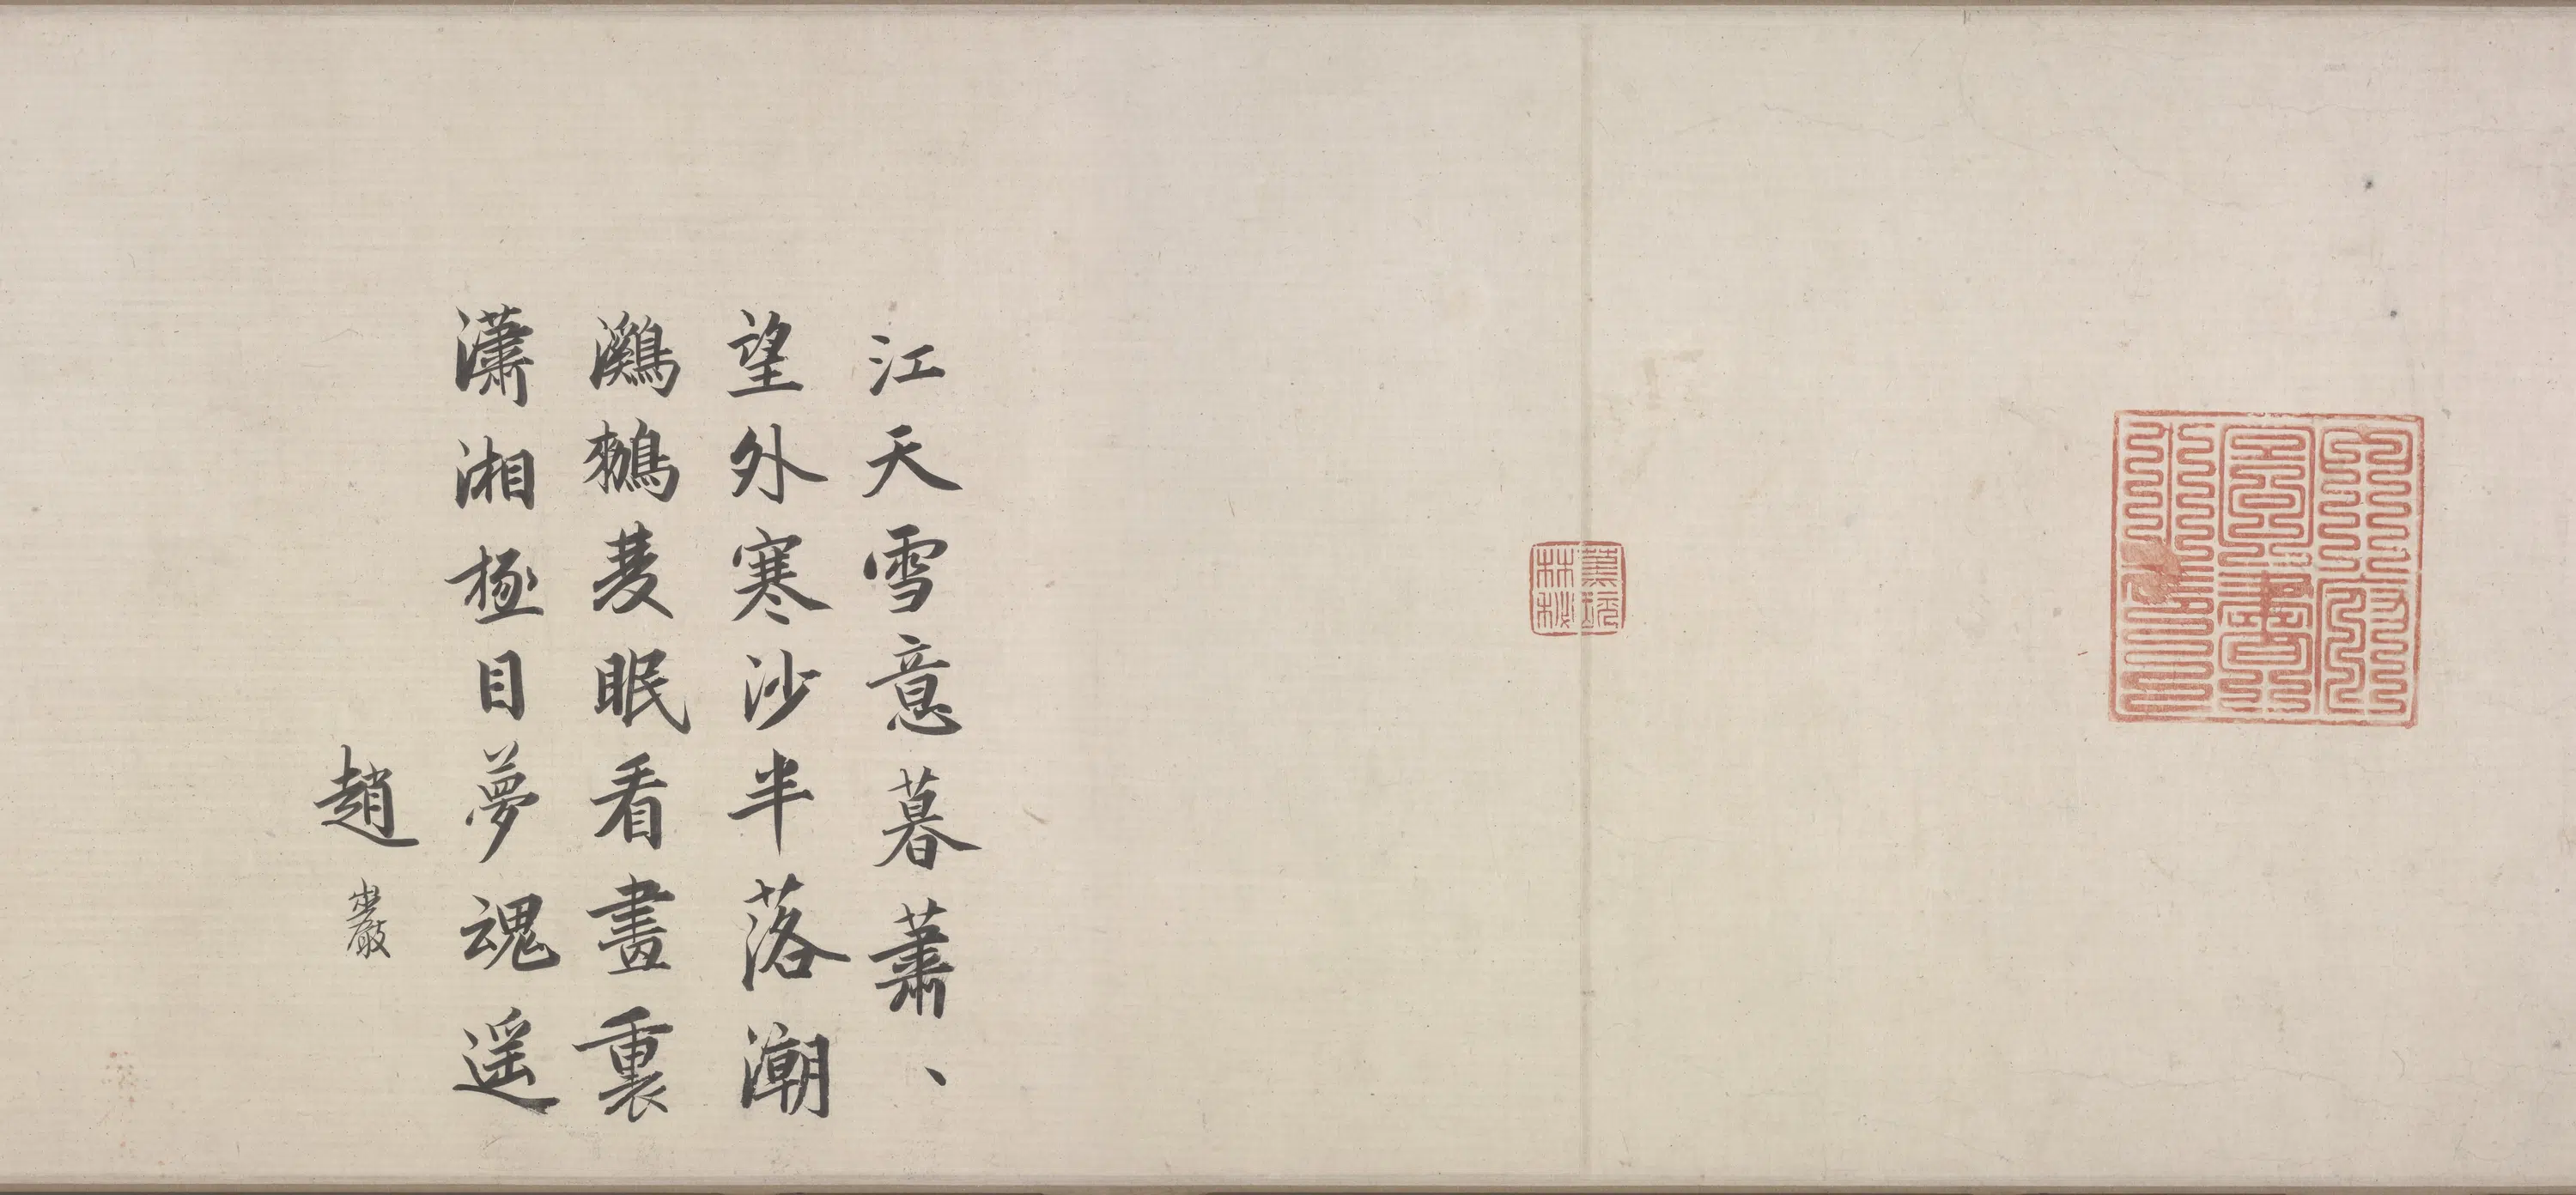 江天雪意暮蕭、
望外寒沙半落潮
鸂鶒蔆眠看畫裏
瀟湘極目夢魂遥
趙巖